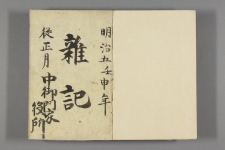 明治五壬申年
雜記
從正月
中御門家
役所